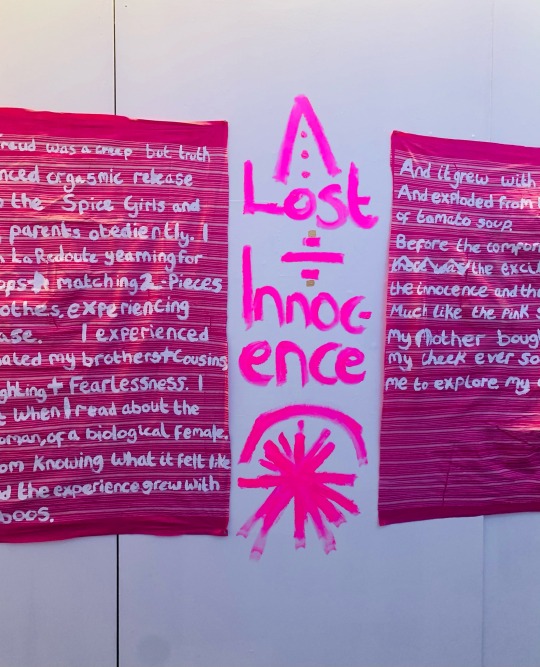 reud was a creep but truth
nced orgasmic release
o the Spice Girls and
parents obediently. I
La Redoute yearning for
ops matching 2-Pieces
othes, experiencing
ase. I experienced
ated my brothers + cousins
ghting + Fearlessness. I
t when I read about the
oman, of a biological female.
om knowing what it felt like
d the experience grew with
boos.
A
Lost
÷
Innoc-
ence
And it grew with
And exploded from
or tomato soup.
Before the
the
the innocence and th
Much like the pink S
My Mother boug
my cheek ever so
me to explore my